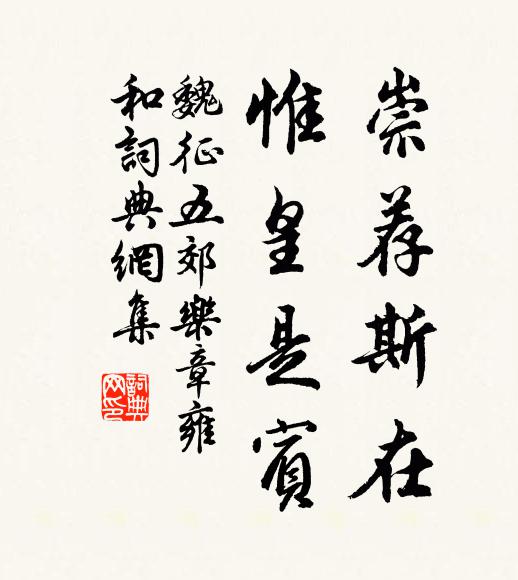 崇荐斯在
惟皇是宾
魏征五郊樂章雍
和詞典網集
詞典
网印